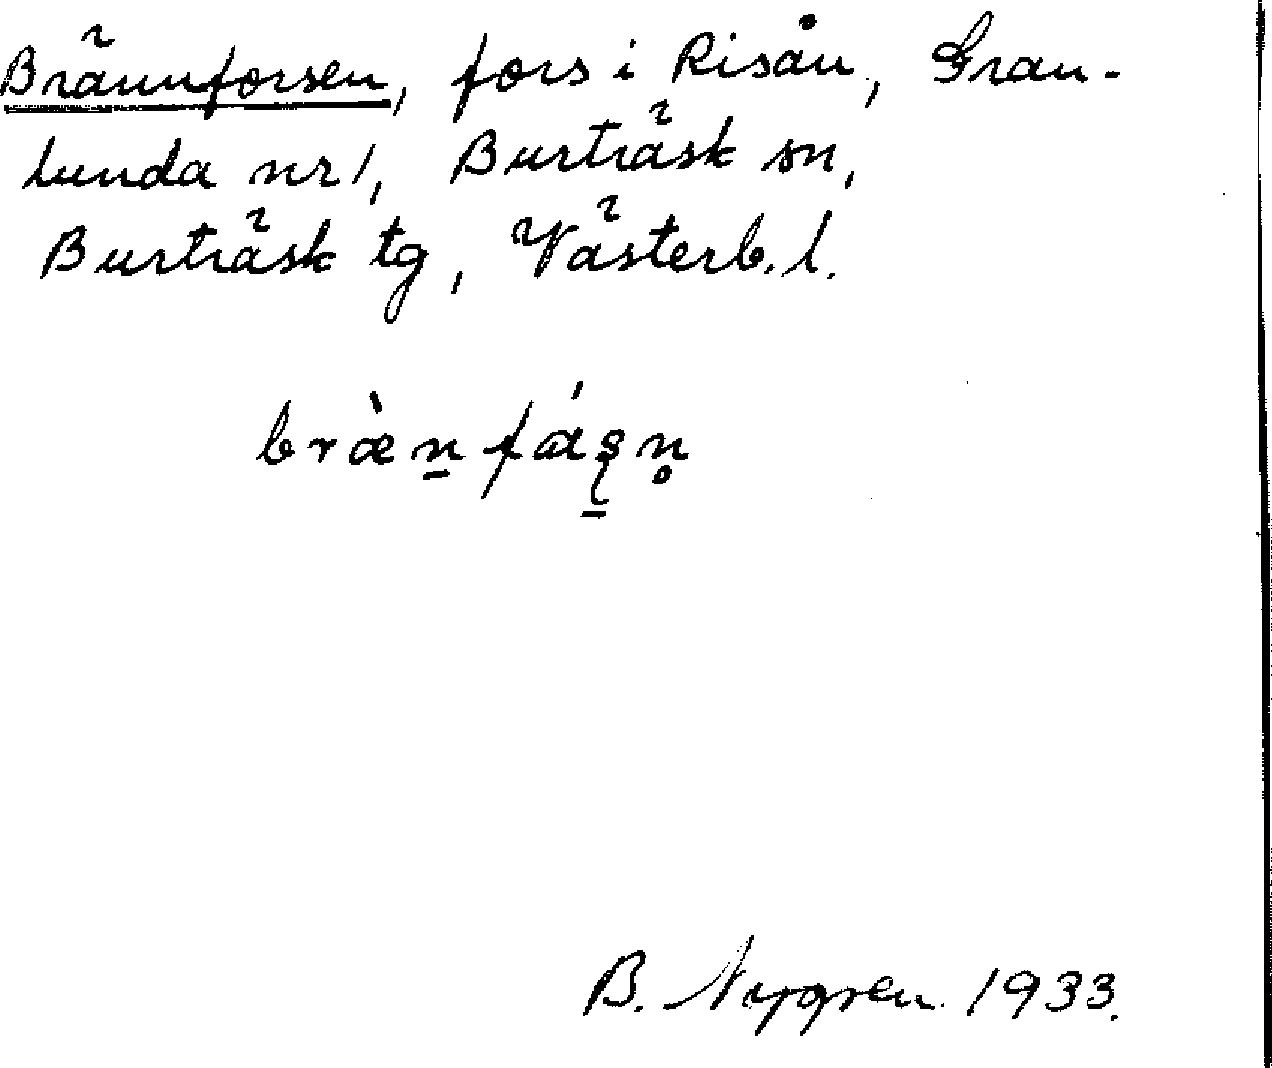 Brännforsen, fors i Risån, Gran-
lunda nr 1, Burträsk sn,
Burträsk tg, Västerb. l.
bræ̀n̠fáʂ̠n̥
B. Nygren 1933.